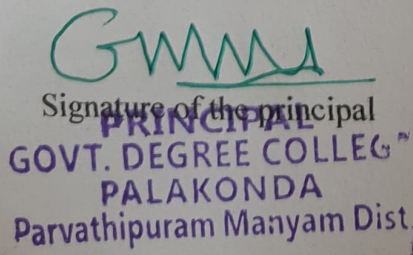 Signature of the principal
PRINCIPAL
GOVT. DEGREE COLLEG
PALAKONDA
Parvathipuram Manyam Dist.